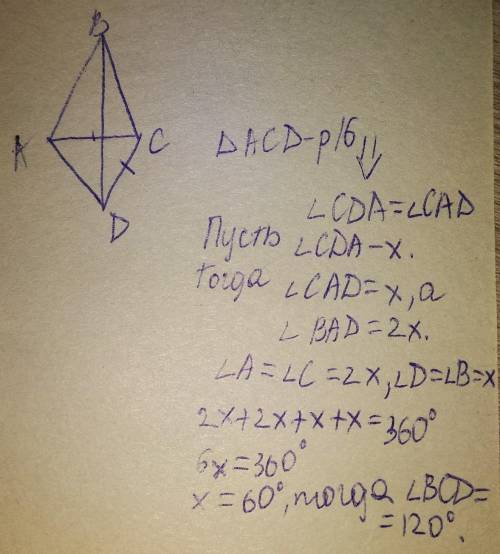 B
A
C
D
ΔACD-р/б
⇓
∠CDA=∠CAD
Пусть ∠CDA-x.
тогда ∠CAD=x, а
∠BAD=2x.
∠A=∠C=2x, ∠D=∠B=x
2x+2x+x+x=360°
6x=360°
x=60°, тогда ∠BCD=
=120°.